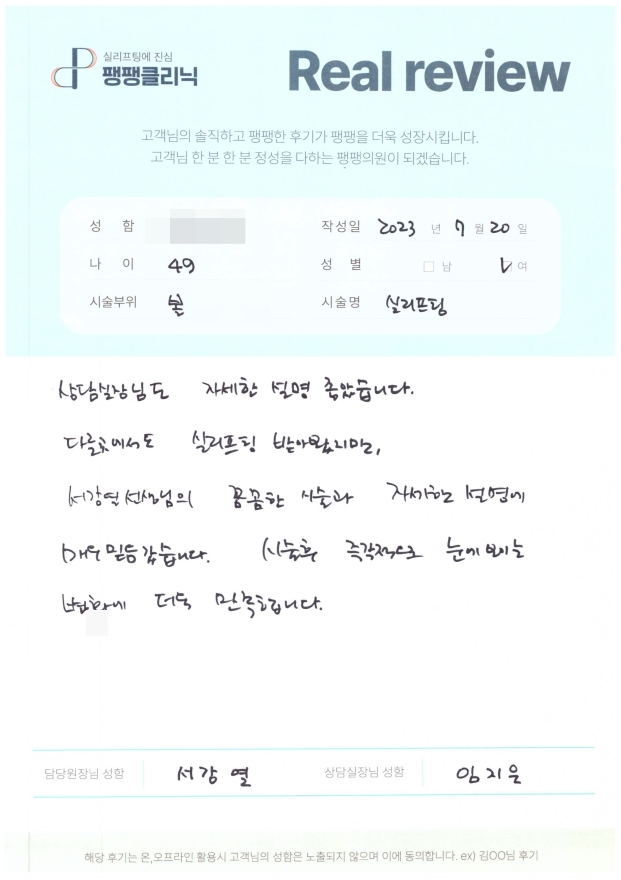 실리프팅에 진심
팽팽클리닉
Real review
고객님의 솔직하고 팽팽한 후기가 팽팽을 더욱 성장시킵니다.
고객님 한 분 한 분 정성을 다하는 팽팽의원이 되겠습니다.
성 함
작성일 2023 년 7 월 20 일
나 이 49
성 별 남 여
시술부위 볼
시술명 실리프팅
상담실장님도 자세한 설명 좋았습니다.
다른곳에서도 실리프팅 받아봤지만,
서강열선생님의 꼼꼼한 시술과 자세한 설명에
매우 믿음갔습니다. 시술후 즉각적으로 눈에 보이는
변화에 더욱 만족합니다.
담당원장님 성함 서강열
상담실장님 성함 임지은
해당 후기는 온,오프라인 활용시 고객님의 성함은 노출되지 않으며 이에 동의합니다. ex) 김OO님 후기